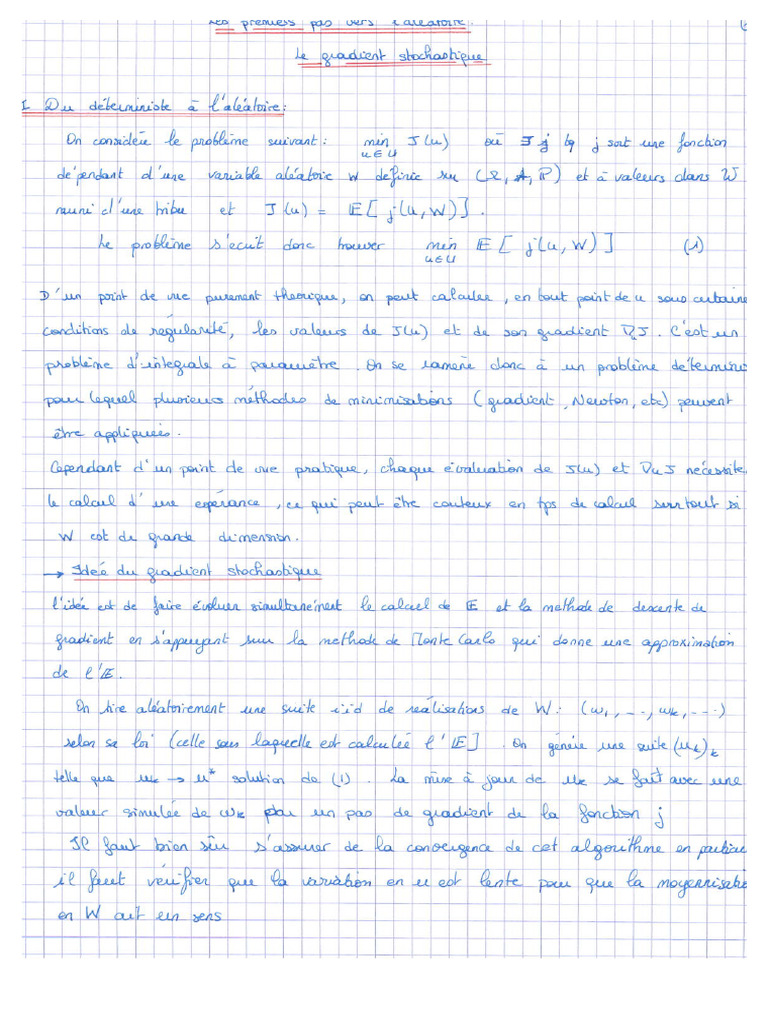 Les premiers pas vers l'aléatoire.
Le gradient stochastique
I Du déterministe à l'aléatoire:
On considère le problème suivant: min J(u) où j tq j soit une fonction
u∈U
dépendant d'une variable aléatoire W définie sur (Ω, A, P) et à valeurs dans W
muni d'une tribu et J(u) = E[ j(u, W)].
Le problème s'écrit donc trouver min E[ j(u, W)] (1)
u∈U
D'un point de vue purement théorique, on peut calculer, en tout point de u sous certaine
conditions de régularité, les valeurs de J(u) et de son gradient ∇uJ. C'est un
problème d'intégrale à paramètre. On se ramène donc à un problème détermini
pour lequel plusieurs méthodes de minimisations (gradient, Newton, etc) peuvent
être appliquées.
Cependant d'un point de vue pratique, chaque évaluation de J(u) et ∇uJ nécessite
le calcul d'une espérance, ce qui peut être couteux en tps de calcul surtout si
W est de grande dimension.
→ Idée du gradient stochastique
l'idée est de faire évoluer simultanément le calcul de E et la méthode de descente de
gradient en s'appuyant sur la méthode de Monte Carlo qui donne une approximation
de l'E.
On tire aléatoirement une suite iid de réalisations de W: (w1, ..., wk, ...)
selon sa loi (celle sous laquelle est calculée l'E]. On génère une suite (uk)k
telle que uk → u* solution de (1). La mise à jour de uk se fait avec une
valeur simulée de wk par un pas de gradient de la fonction j
Il faut bien sûr s'assurer de la convergence de cet algorithme en particu
il faut vérifier que la variation en u est lente pour que la moyennisatio
en W ait un sens